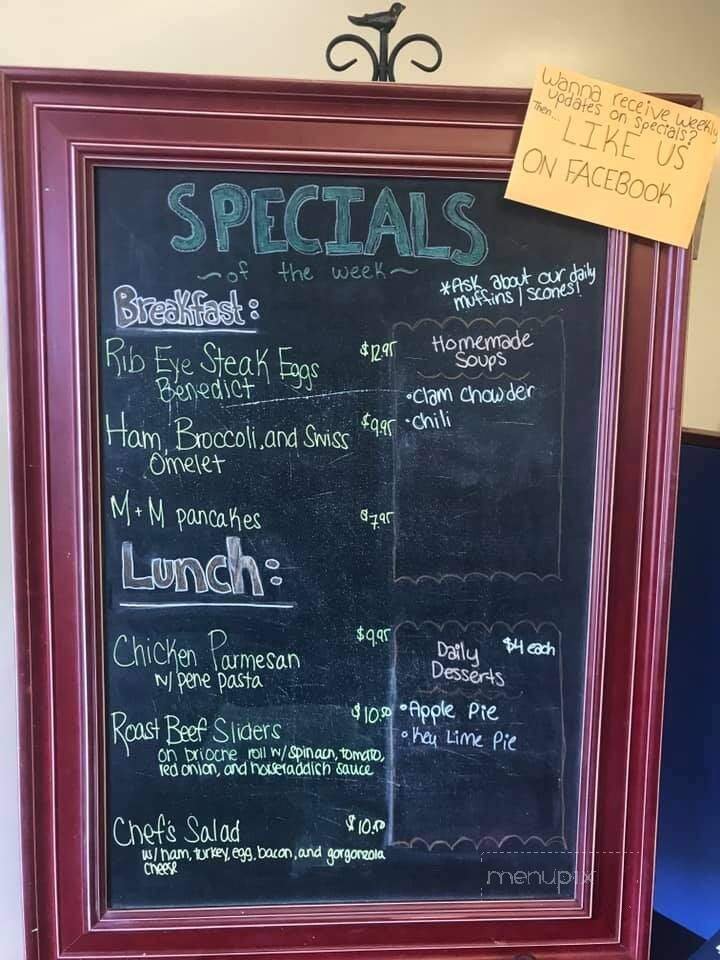 Wanna receive weekly
updates on specials?
Then... LIKE US
ON FACEBOOK
SPECIALS
~of the week~
*Ask about our daily
muffins / scones!
Breakfast:
Rib Eye Steak Eggs $12.95
Benedict
Ham, Broccoli, and Swiss $9.95
Omelet
M+M pancakes $7.95
Homemade
Soups
•Clam Chowder
•chili
Lunch:
Chicken Parmesan $9.95
w/ pene pasta
Roast Beef Sliders $10.50
on brioche roll w/ spinach, tomato,
red onion, and horseraddish sauce
Chef's Salad $10.50
w/ ham, turkey, egg, bacon, and gorgonzola
cheese
Daily $4 each
Desserts
•Apple Pie
•Key Lime Pie
menupix